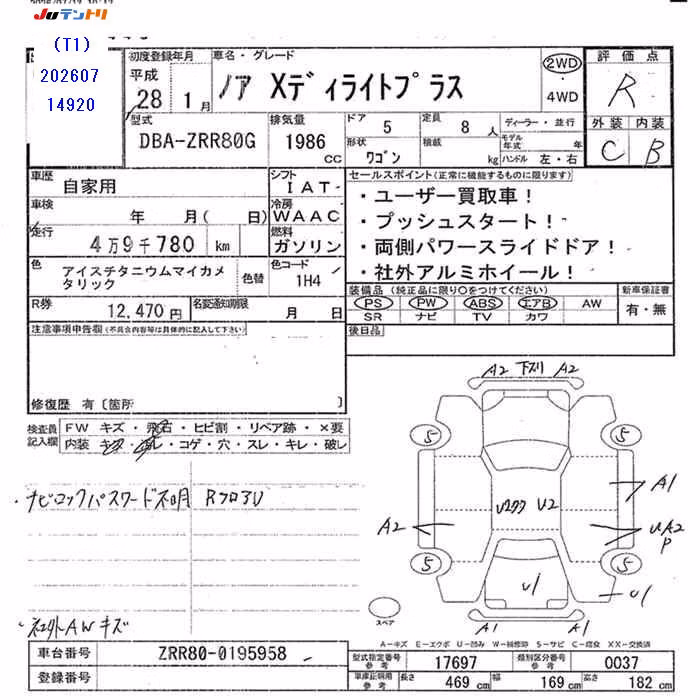 JUテントリ
(T1)
202607
14920
初度登録年月
平成
28 1月
車名・グレード
ノア Xディライトプラス
2WD
・
4WD
評価点
R
外装 内装
C B
型式
DBA-ZRR80G
排気量
1986
CC
ドア 5
定員 8人
形状 ワゴン
積載 kg
ディーラー・並行
モデル年式 年
ハンドル 左・右
車歴 自家用
シフト IAT
車検 年 月( 日)
冷房 WAAC
走行 4万9千780 km
燃料 ガソリン
色 アイスチタニウムマイカメタリック
色替
色コード 1H4
R券 12,470円
名変通知期限 月 日
セールスポイント(正常に機能するものに限ります)
・ユーザー買取車!
・プッシュスタート!
・両側パワースライドドア!
・社外アルミホイール!
装備品(純正品に限り○をつけてください)
PS PW ABS エアB AW
SR ナビ TV カワ
新車保証書
有・無
後日品
注意事項申告欄(不具合内容等は具体的に記入して下さい)
修復歴 有〔箇所 〕
検査員記入欄
FW キズ・飛石・ヒビ割・リペア跡・×要
内装 キズ・汚レ・コゲ・穴・スレ・キレ・破レ
・ナビロックパスワード不明 RフロアU
・社外AWキズ
A2 下スリ A2
5 5
A1
U2 
A2
UA2
P
5 5
U1
U1
A1 A1
スペア
A-キズ E-エクボ U-凹み W-補修跡 S-サビ C-腐食 XX-交換済
車台番号 ZRR80-0195958
登録番号
型式指定番号 参考 17697
類別区分番号 参考 0037
車庫証明用 参考
長さ 469 cm
幅 169 cm
高さ 182 cm